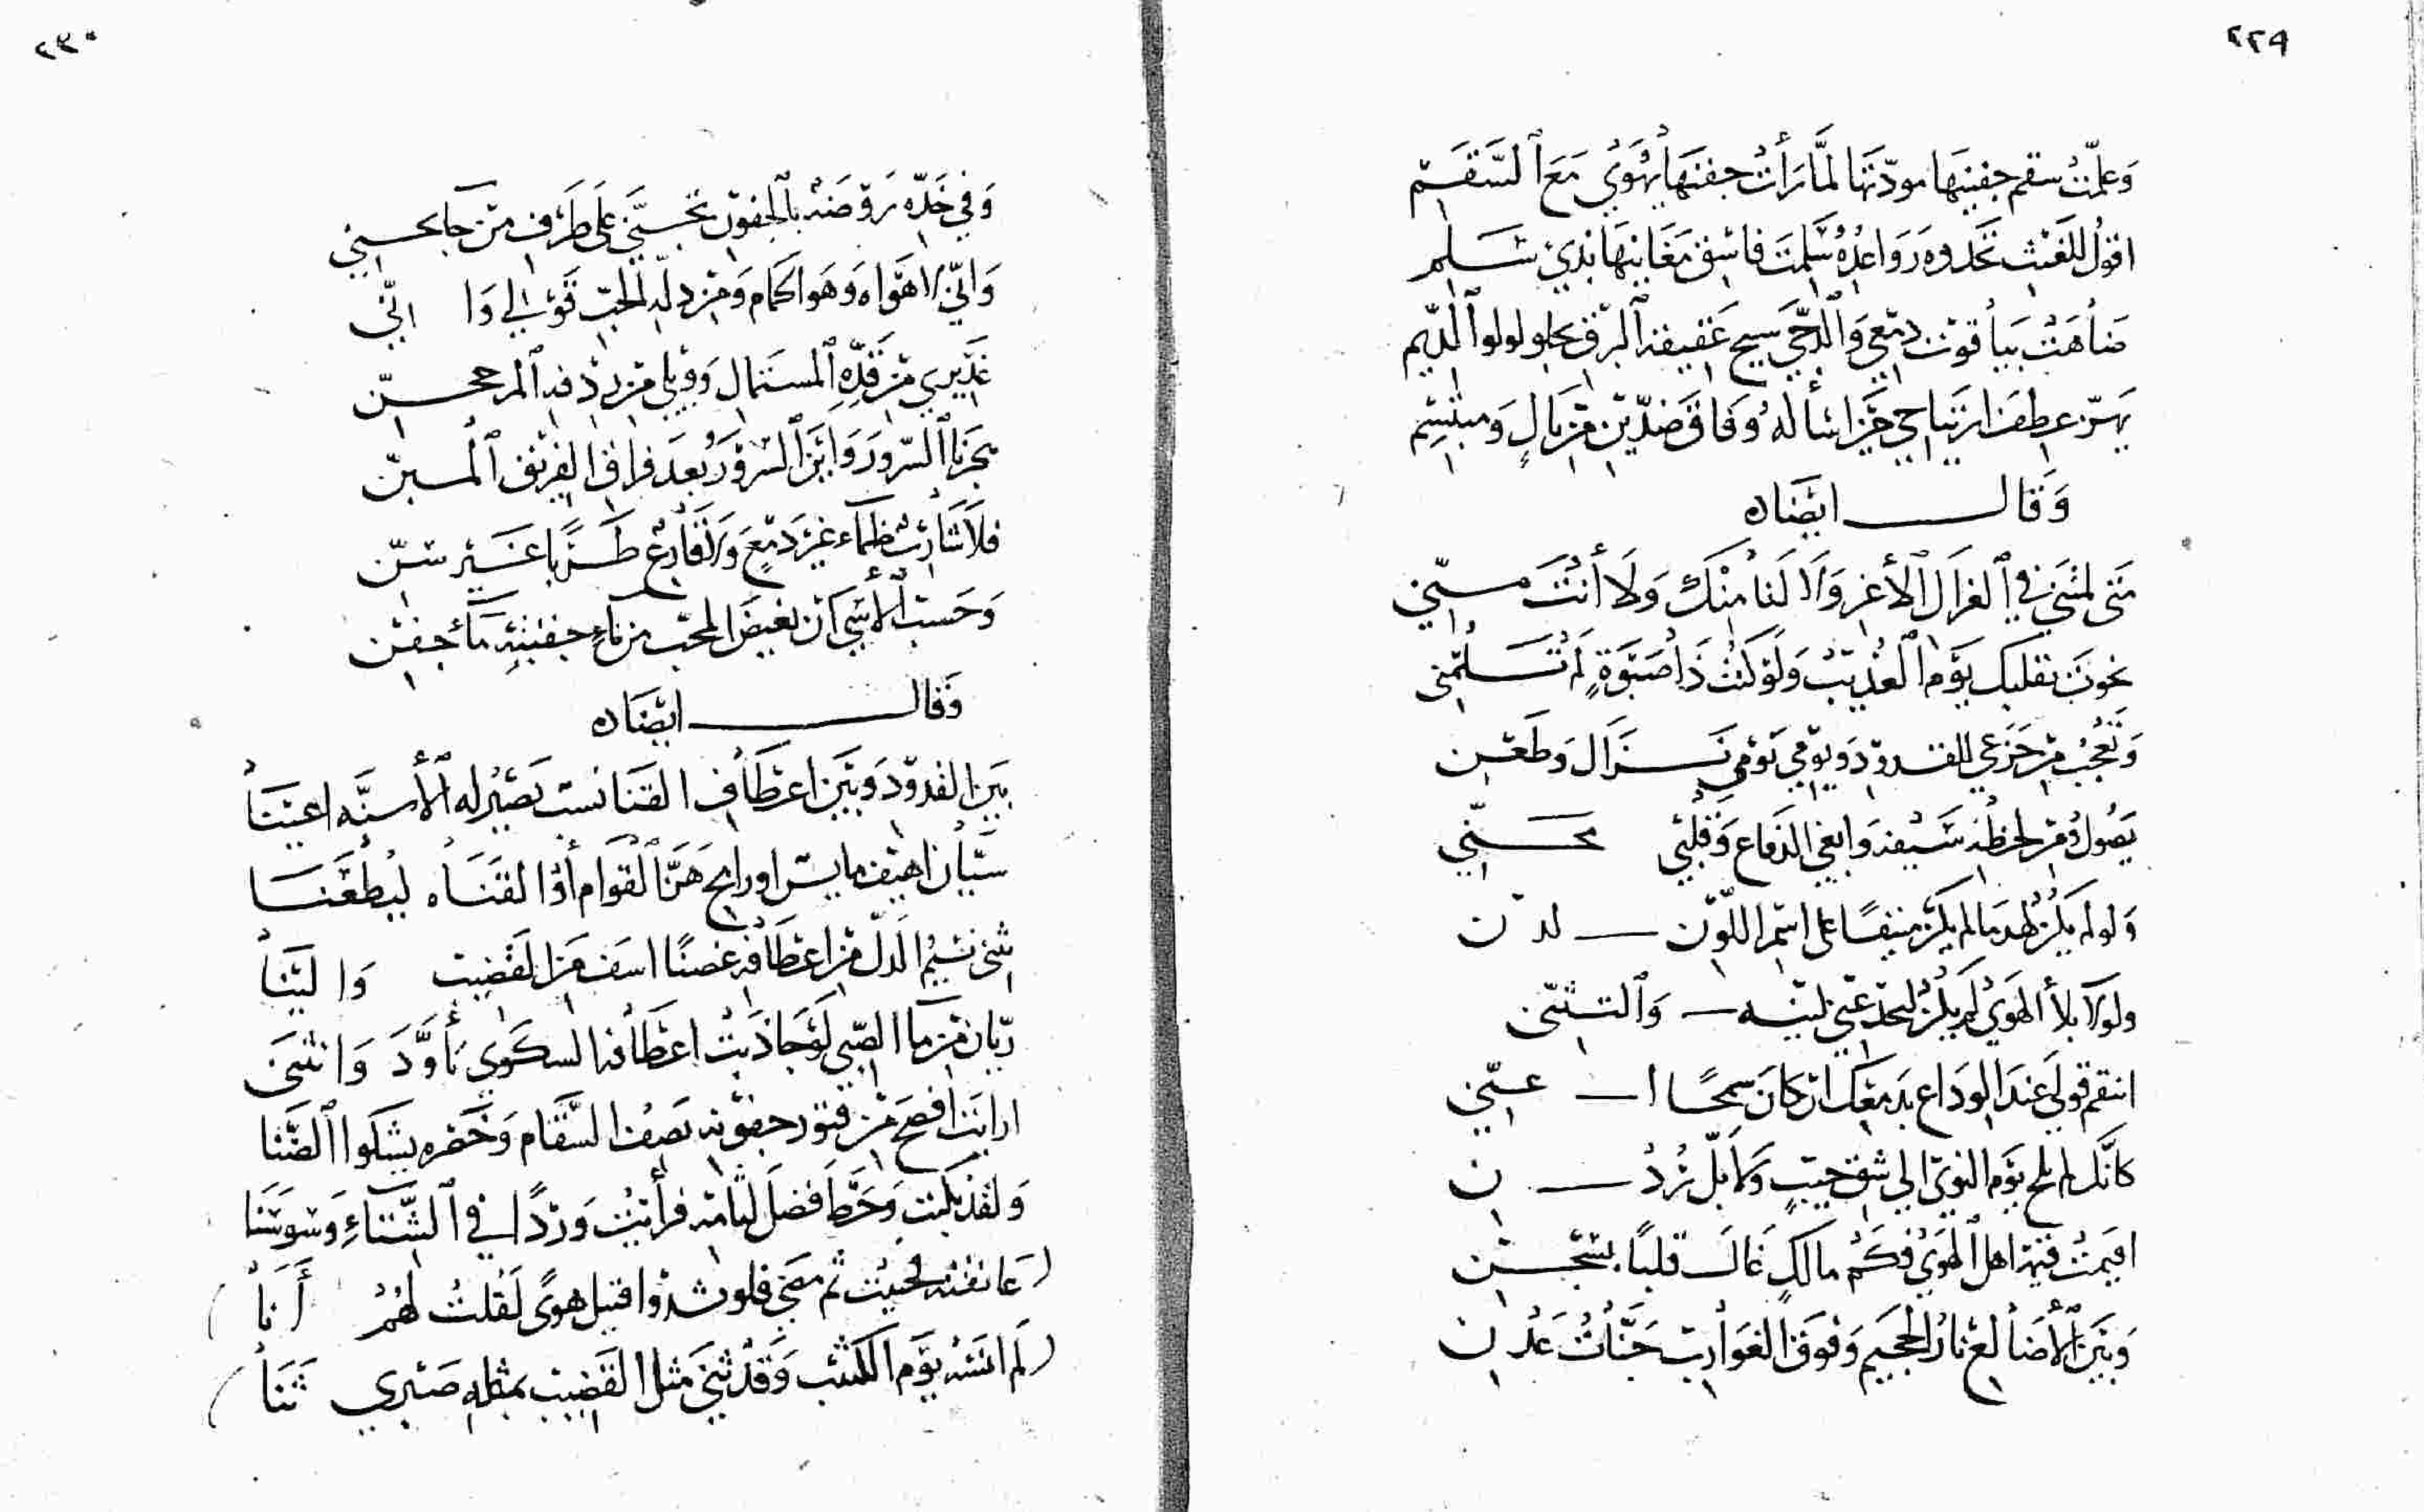 ٢٢٩
وَعلّمتُ سقم جفنيَها مودّتَها لمَّا رَأتْ جفنَهَا يهْوَى مَعَ السَّقَم
اقولُ للغَيْث تَحْدوه رَوَاعدُه سَلِمتَ فاسْقِ مَغَانيهَا بذي سَلم
ضَاهَتْ بيَاقوت دَمعي وَالدّجَى سبج عَقيقة البرْق تجلو لولو الدِّيم
يَهزّ عطفَ ارتيَاحي حَرّ اسأله وَفاق ضدّيْن من بَالٍ وَمبتسِم
وَقال ايضًا ه
مَتَى لمْتَني في الغزَال الأغرِّ وَلَا لنَا منْكَ وَلَا أنتَ منّي
نحوتَ بقلبك يَوْم العُذيْب وَلوْ كنْتَ ذَا صَبْوَةٍ لمْ تَسَلْني
وَتَعْجَبُ منْ جَزَعي للقدودِ وَيوْمي يَوْمي نَزَال وَطَعْن
يَصُولُ وَمنْ لحْظهِ سَيْفهُ وَابغي الدّفاع وَقلْبي مجَنّي
وَلو لم يَكنْ لهْدمَا لم يَكنْ منيفًا على اسْمر اللّوْن لدْن
ولولا بلاَ الهَوَى لم يكنْ ليَخْدعَني لينه وَالتثنّي
انتقم قولي عندَ الوَدَاع بدَمعكَ انْ كانَ سمحًا اعنّي
كانّك لم تلح يَوْم النوَى الي شق جيْبٍ وَلا بلّ رُدْن
اقيمتْ قيمة اهل الهَوَى فَكَمْ مالكٍ غالَ قلبًا بسَجْن
وَبَيْن الأضَالع نارُ الجحيم وَفوقَ الغوَارب جَنَّاتُ عَدْن
٢٣٠
وَفي خَدّه رَوْضَة بالجفون تحسبني عَلَى طَرَف منْ جَا يحسني
وَانّي لاهْوَاه وَهوَ الحمَام وَمنْ دله الحبّ قوْلي وَا انّي
عَذيري منْ قَدِّهِ المستَمال وَوَيْلي منْ ردْفه المرجحنّ
هجَرنا السّرورَ وَايْنَ السّرورُ بُعيدَ فراق الفريق المبنّ
فلا شَارَبَتْ ظمَاء غيْرَ دَمْعٍ وَلا قَارَعْ طَرَبًا غَيْر سنّ
وَحَسبُ الأسَى انْ يغيضَ المحبّ من مَاءِ جفنيْهِ مَا جفْن
وَقال ايضًا ه
بَيْن القدوْد وَبَيْن اعْطَاف القنَا نسب تَصيْر له الأسنَّه اعْيُنَا
سيَّان اهْيَف مايس او رامحٍ هَزَّ القوَام أو القنَاه ليَطْعَنَا
يثنى نسيْم الدلّ من اعْطَافه غصنًا اسَف منَ القضيْب وَالْيَنَا
ريّان منْ مَا الصّبى لوْ جَاذَبتْ اعْطَافه السكوَى تأوَّدَ وَانثنَى
ارايتَ افصَحَ منْ فتوْر جفوْنه يَصفُ السّقَام وَخَصْره يشكوا الضَّنَا
وَلقدْ بكيْت وَحَطّ فضلَ لثَامه فرأيْتُ وَردًا في الشّتَاءِ وَسوْسَنَا
( عَانقته فحييْت ثمّ مضَى فلو نشدُوا قتيل هوًى لَقلتُ لهُمْ أنَا )
( لم انسَهُ يَوْم الكثيْب وَقَدْ ثنَى مثل القَضيْب بمثله صَبْري ثَنَا )